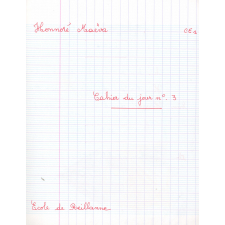 Honnoré Maëva CE1
Cahier du jour n°. 3
Ecole de Reillanne